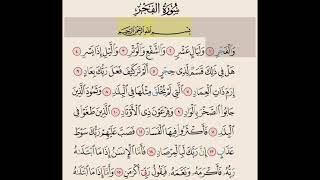 سُورَةُ الفَجْرِ
بِسْمِ اللَّهِ الرَّحْمَٰنِ الرَّحِيمِ
وَالْفَجْرِ ١ وَلَيَالٍ عَشْرٍ ٢ وَالشَّفْعِ وَالْوَتْرِ ٣ وَاللَّيْلِ إِذَا يَسْرِ ٤
هَلْ فِي ذَٰلِكَ قَسَمٌ لِّذِي حِجْرٍ ٥ أَلَمْ تَرَ كَيْفَ فَعَلَ رَبُّكَ بِعَادٍ ٦
إِرَمَ ذَاتِ الْعِمَادِ ٧ الَّتِي لَمْ يُخْلَقْ مِثْلُهَا فِي الْبِلَٰدِ ٨ وَثَمُودَ الَّذِينَ
جَابُوا الصَّخْرَ بِالْوَادِ ٩ وَفِرْعَوْنَ ذِي الْأَوْتَادِ ١٠ الَّذِينَ طَغَوْا فِي
الْبِلَٰدِ ١١ فَأَكْثَرُوا فِيهَا الْفَسَادَ ١٢ فَصَبَّ عَلَيْهِمْ رَبُّكَ سَوْطَ
عَذَابٍ ١٣ إِنَّ رَبَّكَ لَبِالْمِرْصَادِ ١٤ فَأَمَّا الْإِنسَٰنُ إِذَا مَا ابْتَلَىٰهُ
رَبُّهُ فَأَكْرَمَهُ وَنَعَّمَهُ فَيَقُولُ رَبِّي أَكْرَمَنِ ١٥ وَأَمَّا إِذَا مَا ابْتَلَىٰهُ